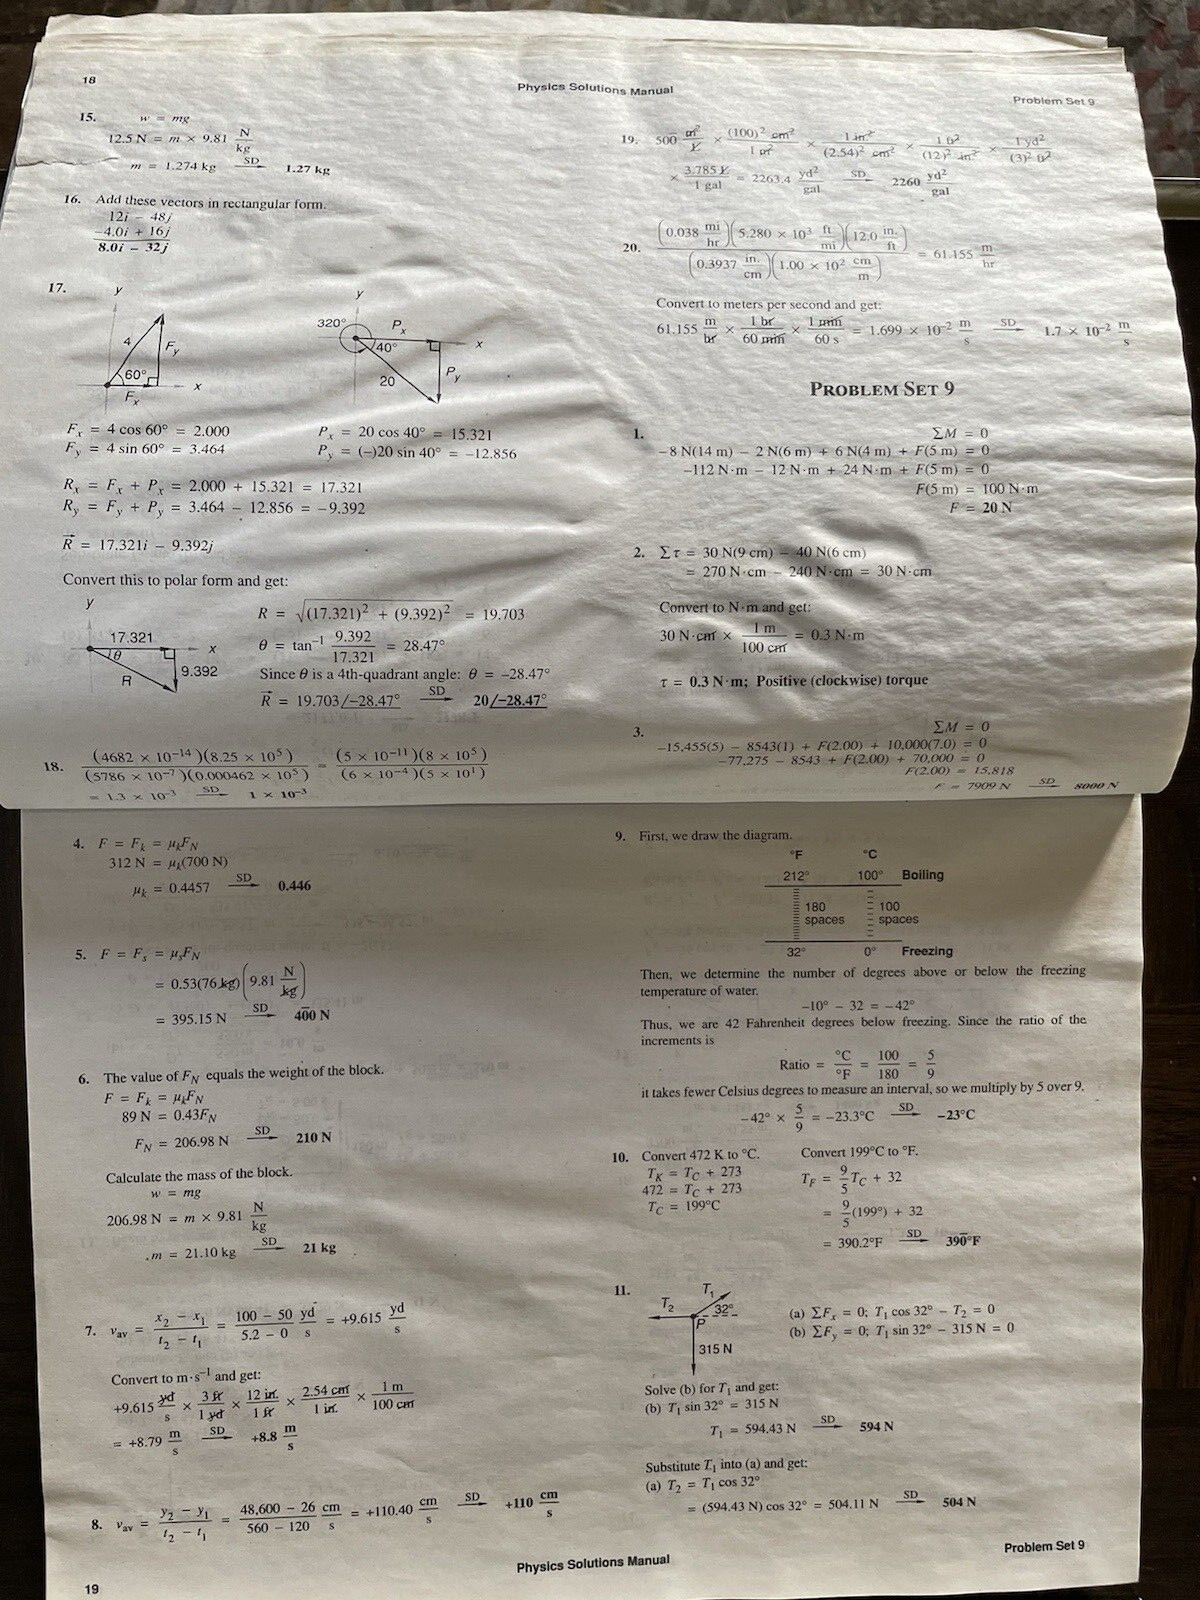 18
Physics Solutions Manual
Problem Set 9
15. w = mg
12.5 N = m × 9.81 N/kg
m = 1.274 kg SD→ 1.27 kg
16. Add these vectors in rectangular form.
12i − 48j
−4.0i + 16j
8.0i − 32j
17.
y
4
Fy
60°
x
Fx
y
320°
Px
x
40°
20
Py
Fx = 4 cos 60° = 2.000
Fy = 4 sin 60° = 3.464
Px = 20 cos 40° = 15.321
Py = (−)20 sin 40° = −12.856
Rx = Fx + Px = 2.000 + 15.321 = 17.321
Ry = Fy + Py = 3.464 − 12.856 = −9.392
R⃗ = 17.321i − 9.392j
Convert this to polar form and get:
y
17.321
x
θ
R
9.392
R = √((17.321)² + (9.392)²) = 19.703
θ = tan⁻¹ 9.392/17.321 = 28.47°
Since θ is a 4th-quadrant angle: θ = −28.47°
R⃗ = 19.703/−28.47° SD→ 20/−28.47°
18. (4682 × 10⁻¹⁴)(8.25 × 10⁵) / (5786 × 10⁻⁷)(0.000462 × 10⁵) = (5 × 10⁻¹¹)(8 × 10⁵) / (6 × 10⁻⁴)(5 × 10¹)
= 1.3 × 10⁻³ SD→ 1 × 10⁻³
19. 500̅ m²/ℓ × (100)² cm²/1 m² × 1 in²/(2.54)² cm² × 1 ft²/(12)² in² × 1 yd²/(3)² ft²
× 3.785 ℓ/1 gal = 2263.4 yd²/gal SD→ 2260 yd²/gal
20. (0.038 mi/hr)(5.280 × 10³ ft/mi)(12.0 in./ft) / (0.3937 in./cm)(1.00 × 10² cm/m) = 61.155 m/hr
Convert to meters per second and get:
61.155 m/hr × 1 hr/60 min × 1 min/60 s = 1.699 × 10⁻² m/s SD→ 1.7 × 10⁻² m/s
PROBLEM SET 9
1. ΣM = 0
−8 N(14 m) − 2 N(6 m) + 6 N(4 m) + F(5 m) = 0
−112 N·m − 12 N·m + 24 N·m + F(5 m) = 0
F(5 m) = 100 N·m
F = 20 N
2. Στ = 30 N(9 cm) − 40 N(6 cm)
= 270 N·cm − 240 N·cm = 30 N·cm
Convert to N·m and get:
30 N·cm × 1 m/100 cm = 0.3 N·m
τ = 0.3 N·m; Positive (clockwise) torque
3. ΣM = 0
−15,455(5) − 8543(1) + F(2.00) + 10,000(7.0) = 0
−77,275 − 8543 + F(2.00) + 70,000 = 0
F(2.00) = 15,818
F = 7909 N SD→ 8000 N
4. F = Fk = μkFN
312 N = μk(700 N)
μk = 0.4457 SD→ 0.446
5. F = Fs = μsFN
= 0.53(76 kg)(9.81 N/kg)
= 395.15 N SD→ 40̅0 N
6. The value of FN equals the weight of the block.
F = Fk = μkFN
89 N = 0.43FN
FN = 206.98 N SD→ 210 N
Calculate the mass of the block.
w = mg
206.98 N = m × 9.81 N/kg
m = 21.10 kg SD→ 21 kg
7. vav = x2 − x1/t2 − t1 = 100 − 50/5.2 − 0 yd/s = +9.615 yd/s
Convert to m·s⁻¹ and get:
+9.615 yd/s × 3 ft/1 yd × 12 in./1 ft × 2.54 cm/1 in. × 1 m/100 cm
= +8.79 m/s SD→ +8.8 m/s
8. vav = y2 − y1/t2 − t1 = 48,600 − 26/560 − 120 cm/s = +110.40 cm/s SD→ +110 cm/s
9. First, we draw the diagram.
°F °C
212° 100° Boiling
180 spaces 100 spaces
32° 0° Freezing
Then, we determine the number of degrees above or below the freezing
temperature of water.
−10° − 32 = −42°
Thus, we are 42 Fahrenheit degrees below freezing. Since the ratio of the
increments is
Ratio = °C/°F = 100/180 = 5/9
it takes fewer Celsius degrees to measure an interval, so we multiply by 5 over 9.
−42° × 5/9 = −23.3°C SD→ −23°C
10. Convert 472 K to °C.
TK = TC + 273
472 = TC + 273
TC = 199°C
Convert 199°C to °F.
TF = 9/5 TC + 32
= 9/5(199°) + 32
= 390.2°F SD→ 390̅°F
11.
T1
T2
32°
P
315 N
(a) ΣFx = 0; T1 cos 32° − T2 = 0
(b) ΣFy = 0; T1 sin 32° − 315 N = 0
Solve (b) for T1 and get:
(b) T1 sin 32° = 315 N
T1 = 594.43 N SD→ 594 N
Substitute T1 into (a) and get:
(a) T2 = T1 cos 32°
= (594.43 N) cos 32° = 504.11 N SD→ 504 N
Physics Solutions Manual
Problem Set 9
19